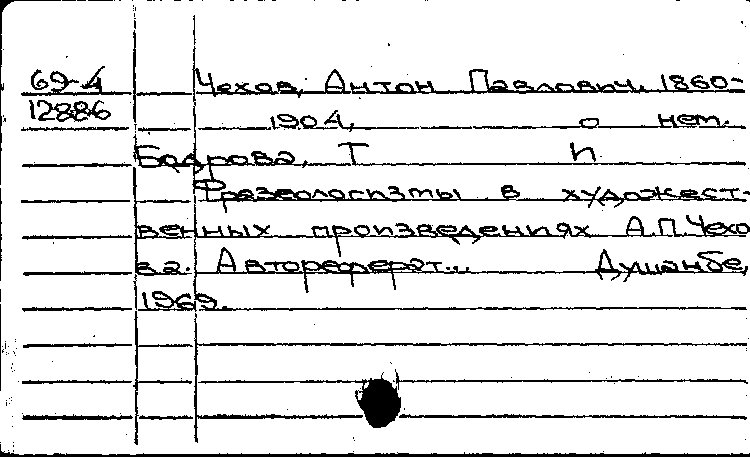 69-4 Чехов, Антон Павлович, 1860-
12886 1904, о нем.
Бодрова, Т п
Фразеологизмы в художест-
венных произведениях А.П.Чехо
ва. Автореферат... Душанбе,
1969.